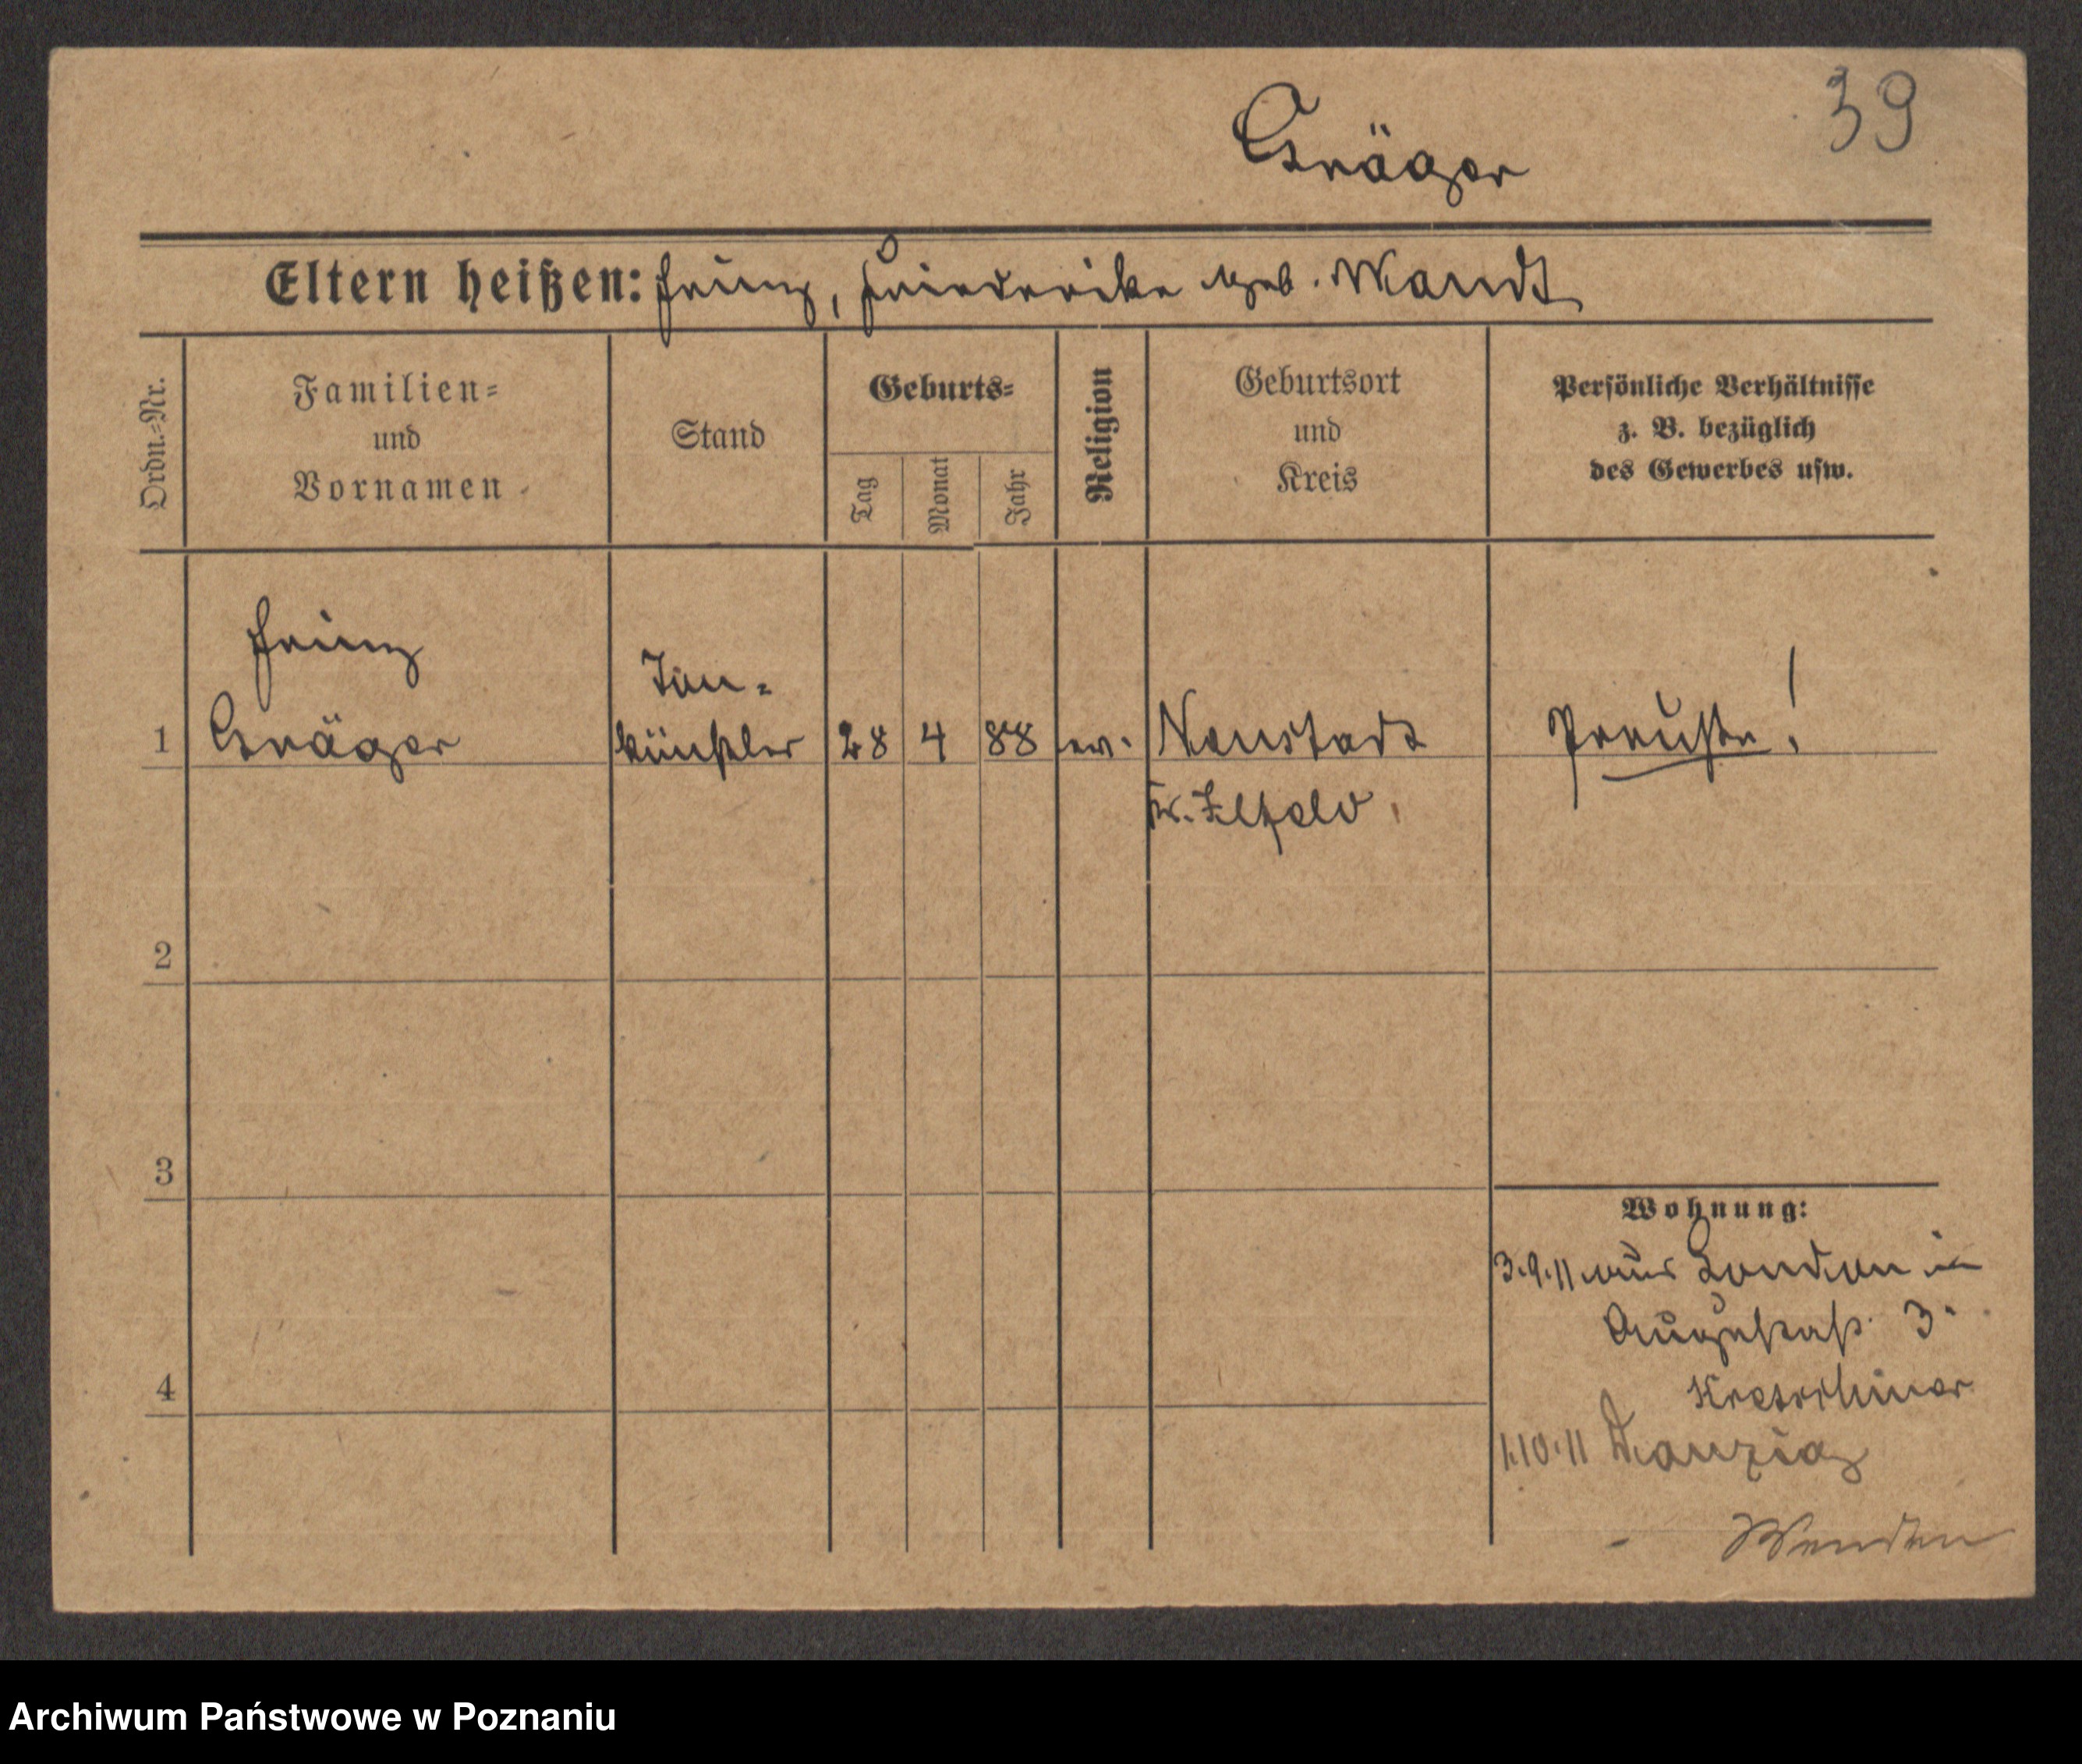 39
Gräger
Eltern heißen: Heinz, Friederike geb. Wandt
Ordn.=Nr.
Familien=
und
Vornamen
Stand
Geburts=
Tag
Monat
Jahr
Religion
Geburtsort
und
Kreis
Persönliche Verhältnisse
z. B. bezüglich
des Gewerbes usw.
1
Heinz
Gräger
Ton=
künstler
28
4
88
ev.
Neustadt
Kr. Ilfeld
Preuße!
2
3
4
Wohnung:
3.9.11 aus London in
Augustastr. 3
Kretschmer
1.10.11 Danzig
Archiwum Państwowe w Poznaniu